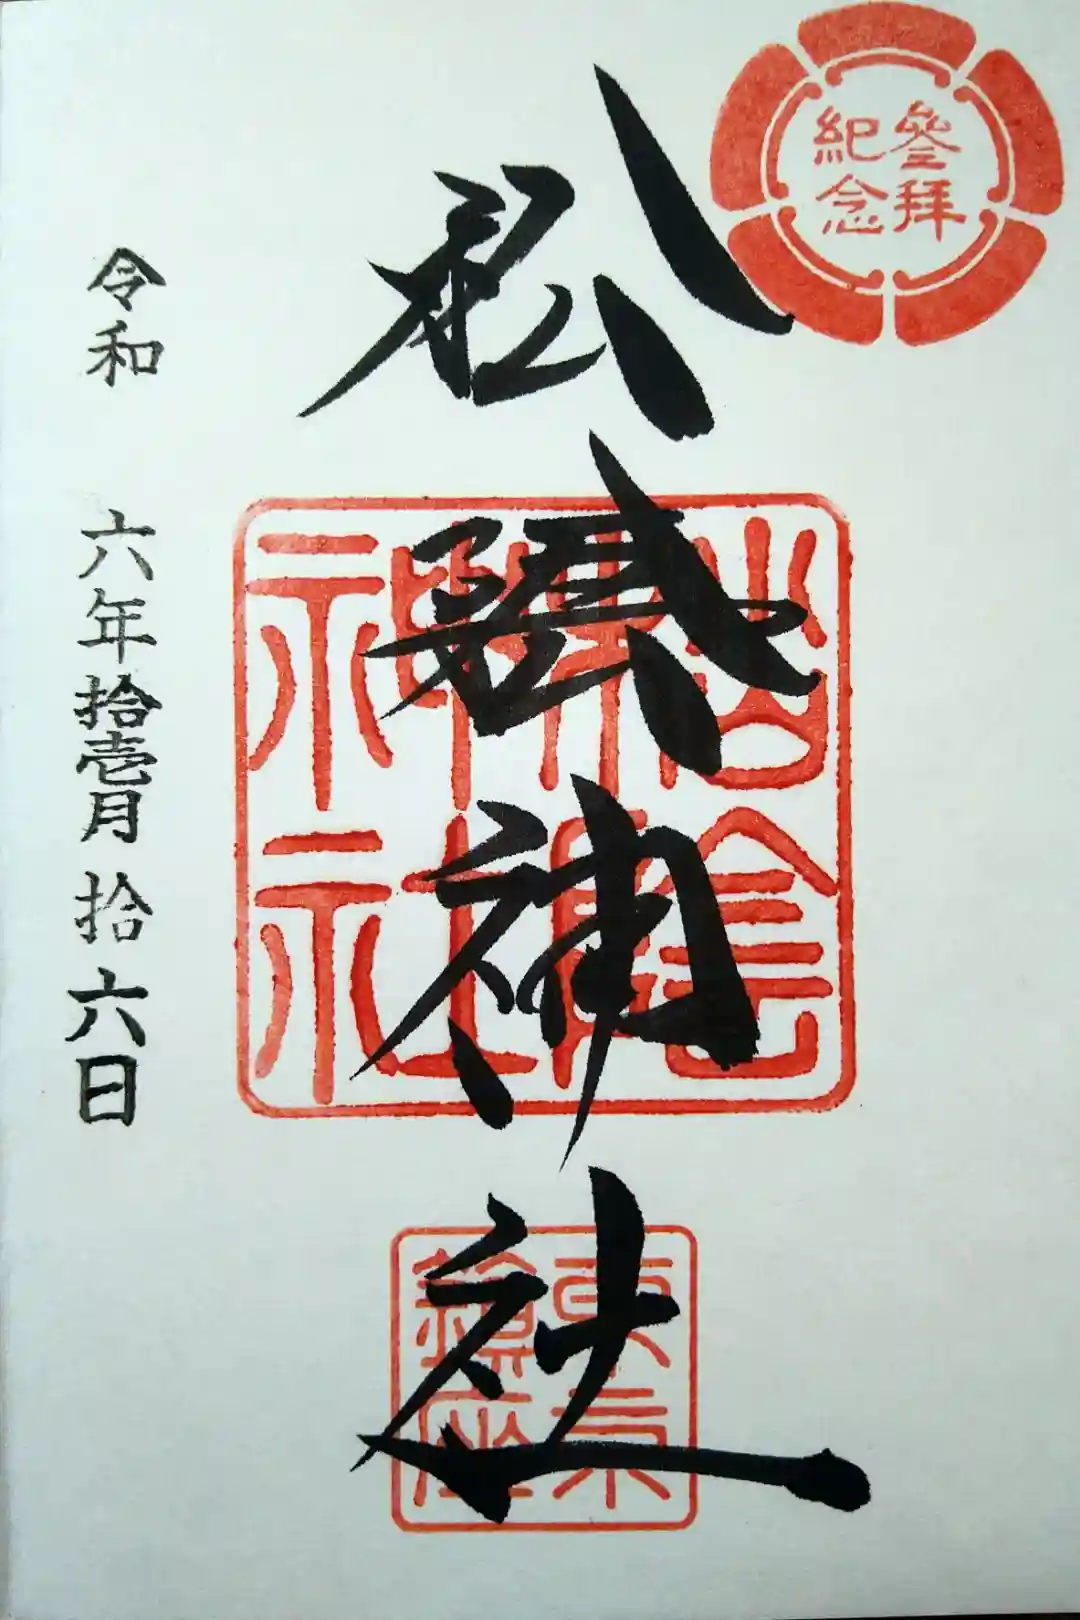 參拜
紀念
松陰神社
松陰
神社
東京
鎮座
令和 六年拾壱月拾六日